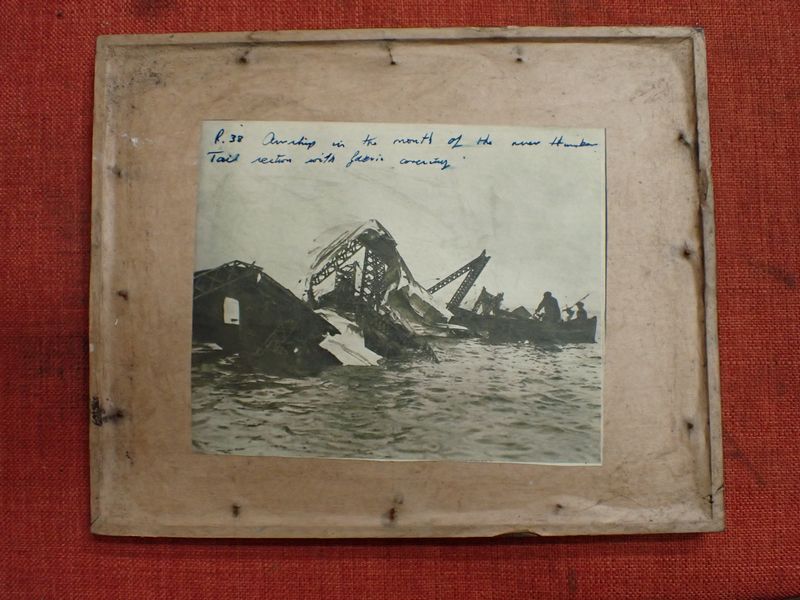 R.38 Airship in the mouth of the river Humber
Tail section with fabric covering.